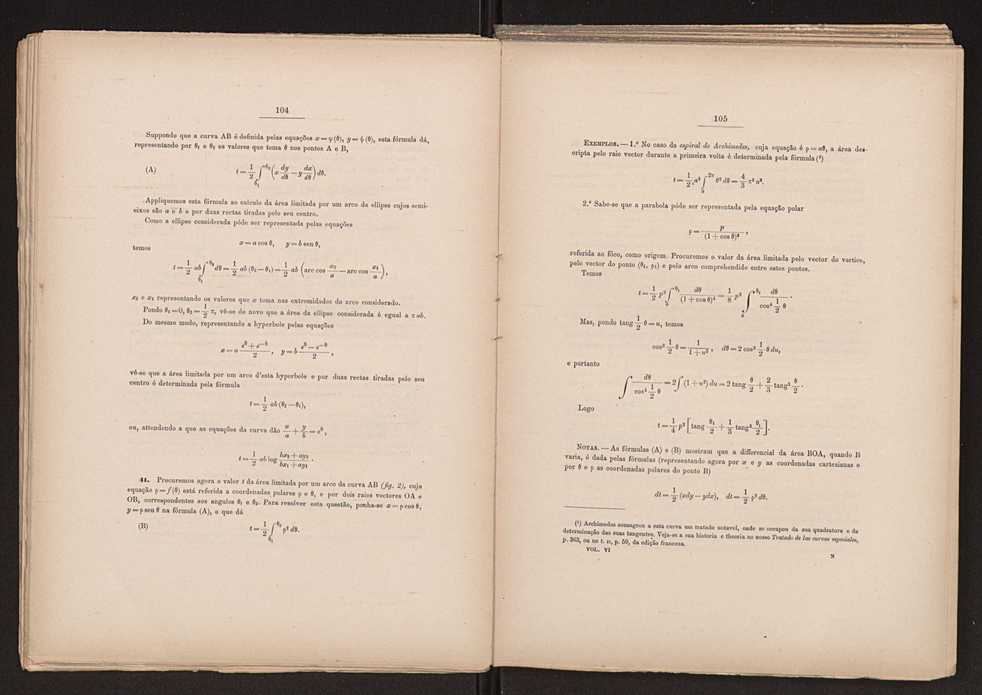 104
Supponde que a curva AB é definida pelas equações x = φ(θ), y = ψ(θ), esta fórmula dá,
representando por θ₁ e θ₂ os valores que toma θ nos pontos A e B,
(A) t = 1/2 ∫_{θ₁}^{θ₂} (x dy/dθ − y dx/dθ) dθ.
Appliquemos esta fórmula ao calculo da área limitada por um arco da ellipse cujos semi-
eixos são a e b e por duas rectas tiradas pelo seu centro.
Como a ellipse considerada póde ser representada pelas equações
x = a cos θ, y = b sen θ,
temos
t = 1/2 ab ∫_{θ₁}^{θ₂} dθ = 1/2 ab (θ₂ − θ₁) = 1/2 ab (arc cos x₂/a − arc cos x₁/a),
x₂ e x₁ representando os valores que x toma nas extremidades do arco considerado.
Pondo θ₁ = 0, θ₂ = 1/2 π, vê-se de novo que a área da ellipse considerada é egual a π ab.
Do mesmo modo, representando a hyperbole pelas equações
x = a (e^θ + e^−θ)/2, y = b (e^θ − e^−θ)/2,
vê-se que a área limitada por um arco d'esta hyperbole e por duas rectas tiradas pelo seu
centro é determinada pela fórmula
t = 1/2 ab (θ₂ − θ₁),
ou, attendendo a que as equações da curva dão x/a + y/b = e^θ,
t = 1/2 ab log (bx₂ + ay₂)/(bx₁ + ay₁).
44. Procuremos agora o valor t da área limitada por um arco da curva AB (fig. 2), cuja
equação ρ = f(θ) está referida a coordenadas polares ρ e θ, e por dois raios vectores OA e
OB, correspondentes aos angulos θ₁ e θ₂. Para resolver esta questão, ponha-se x = ρ cos θ,
y = ρ sen θ na fórmula (A), o que dá
(B) t = 1/2 ∫_{θ₁}^{θ₂} ρ² dθ.
105
EXEMPLOS. — 1.º No caso da espiral de Archimedes, cuja equação é ρ = aθ, a área des-
cripta pelo raio vector durante a primeira volta é determinada pela fórmula (¹)
t = 1/2 a² ∫_0^{2π} θ² dθ = 4/3 π³ a².
2.º Sabe-se que a parabola póde ser representada pela equação polar
ρ = p/(1 + cos θ)²,
referida ao fóco, como origem. Procuremos o valor da área limitada pelo vector do vertice,
pelo vector do ponto (θ₁, ρ₁) e pelo arco comprehendido entre estes pontos.
Temos
t = 1/2 p² ∫_0^{θ₁} dθ/(1 + cos θ)² = 1/8 p² ∫_0^{θ₁} dθ/cos⁴ 1/2 θ.
Mas, pondo tang 1/2 θ = u, temos
cos² 1/2 θ = 1/(1 + u²), dθ = 2 cos² 1/2 θ du,
e portanto
∫ dθ/cos⁴ 1/2 θ = 2 ∫ (1 + u²) du = 2 tang θ/2 + 2/3 tang³ θ/2.
Logo
t = 1/4 p² [tang θ₁/2 + 1/3 tang³ θ₁/2].
NOTAS. — As fórmulas (A) e (B) mostram que a differencial da área BOA, quando B
varia, é dada pelas fórmulas (representando agora por x e y as coordenadas cartesianas e
por θ e ρ as coordenadas polares do ponto B)
dt = 1/2 (xdy − ydx), dt = 1/2 ρ² dθ.
(¹) Archimedes consagrou a esta curva um tratado notavel, onde se occupou da sua quadratura e da
determinação das suas tangentes. Veja-se a sua historia e theoria no nosso Tratado de las curvas especiales,
p. 363, ou no t. II, p. 59, da edição francesa.
VOL. VI N